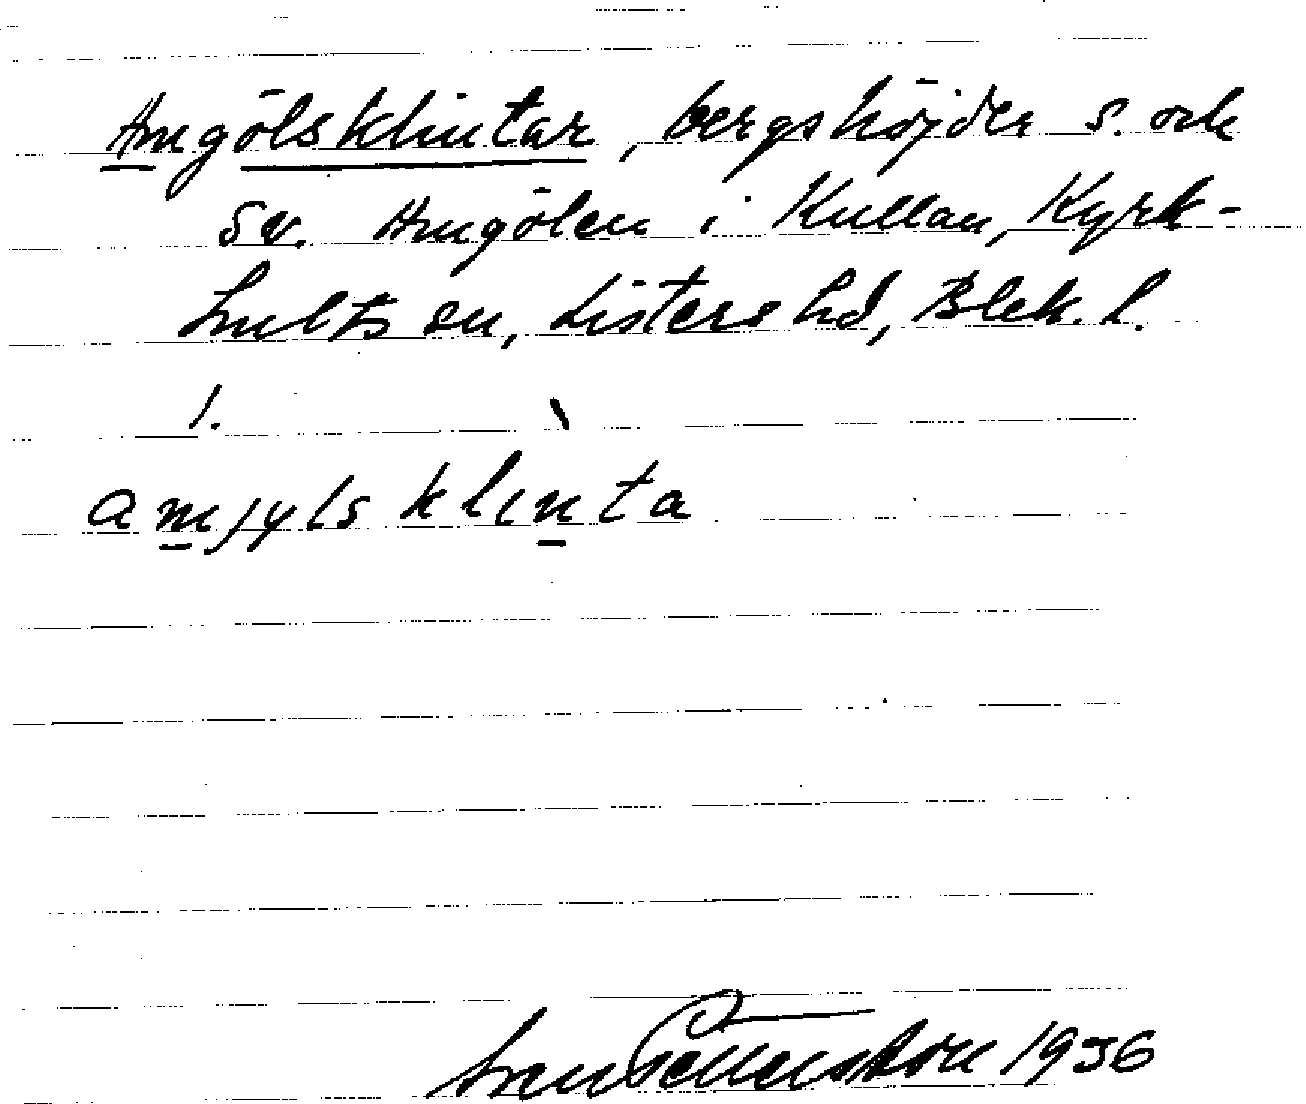 Amgölsklintar, bergshöjder s. och
sv. Amgölen i Kullan, Kyrk-
hults sn, Listers hd, Blek. l.
1.
amjyls klìnta
Sven Benson 1936